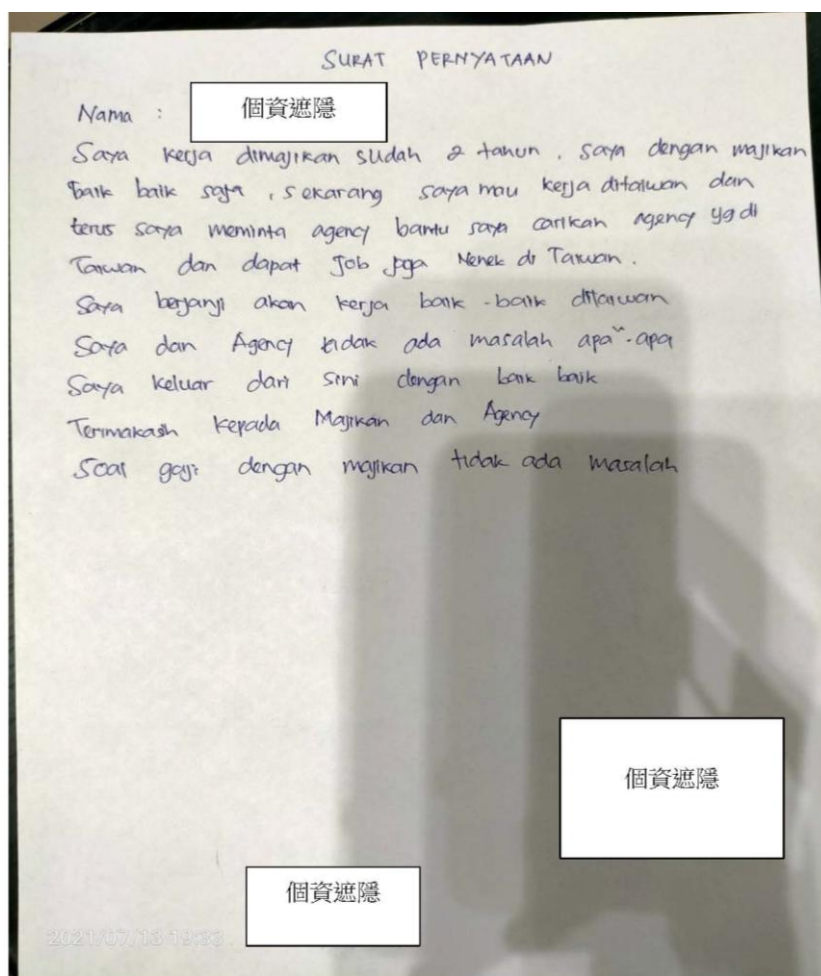 SURAT PERNYATAAN
Nama : 個資遮隱
Saya kerja dimajikan sudah 2 tahun . saya dengan majikan
baik baik saja , sekarang saya mau kerja ditaiwan dan
terus saya meminta agency bantu saya carikan agency yg di
Taiwan dan dapat Job jaga Nenek di Taiwan .
Saya berjanji akan kerja baik - baik ditaiwan
Saya dan Agency tidak ada masalah apa - apa
Saya keluar dari sini dengan baik baik
Terimakash kepada Majikan dan Agency
Soal gaji dengan majikan tidak ada masalah
個資遮隱
個資遮隱
2021/07/13 19:33